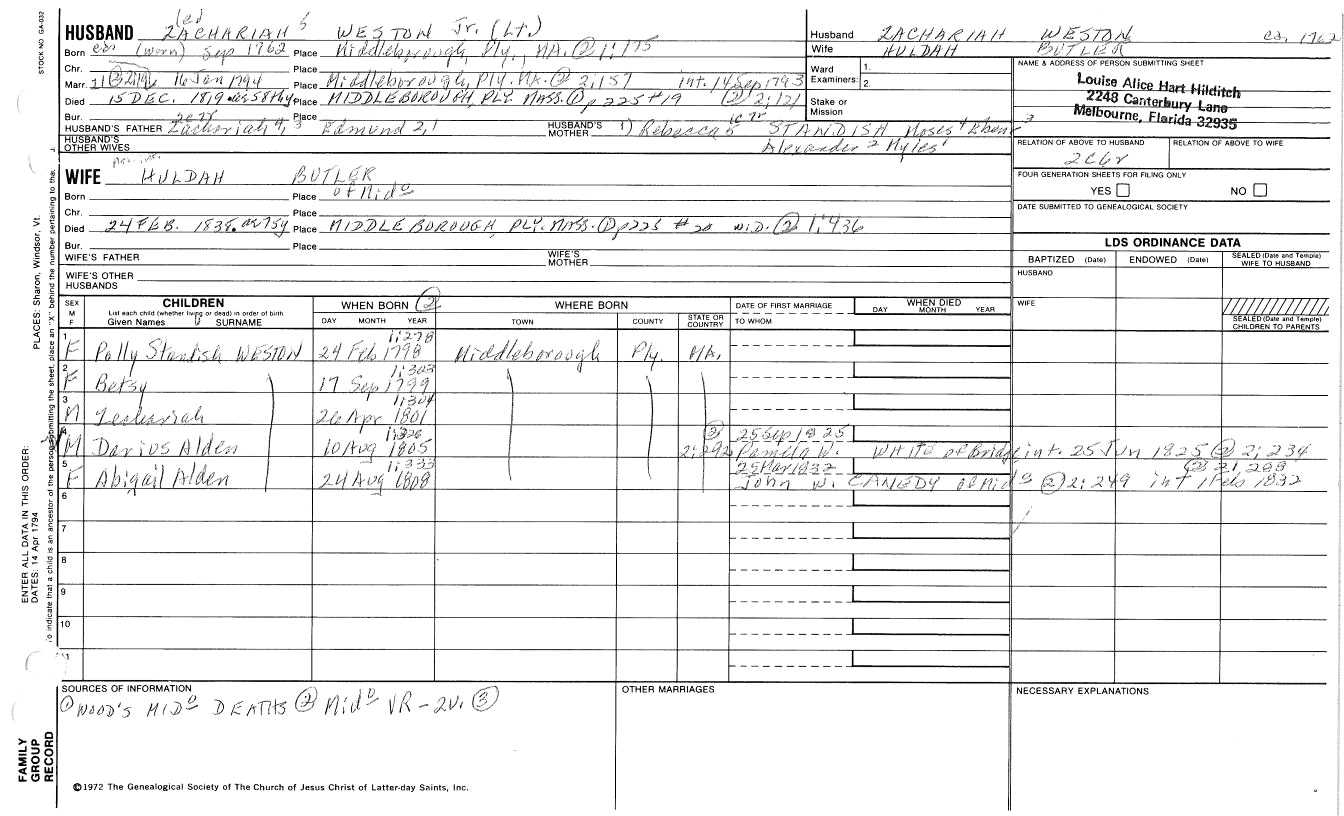 STOCK NO GA-032
PLACES: Sharon, Windsor, Vt.
ENTER ALL DATA IN THIS ORDER:
DATES: 14 Apr 1794
To indicate that a child is an ancestor of the person submitting the sheet, place an "X" behind the number pertaining to that
FAMILY
GROUP
RECORD
HUSBAND ZACHARIAH 5 WESTON Jr. (Lt.)
Born (worn) Sep 1762 Place Middleborough, Ply., MA. ② 1:175
Chr.
Marr. 16 Jan 1794 Place Middleborough, Ply. MA. ② 2;157 int. 14 Sep 1793
Died 15 DEC. 1819 Place MIDDLEBOROUGH, PLY. MASS. ① p 225 #19 ② 2;121
Bur. Place
HUSBAND'S FATHER Zachariah 4, 3 Edmund 2, 1 HUSBAND'S MOTHER 1) Rebecca 5 STANDISH Moses 4 3
HUSBAND'S OTHER WIVES Alexander 2 Myles 1
WIFE HULDAH BUTLER
Born Place of Mid⁰
Chr. Place
Died 24 FEB. 1838. Place MIDDLEBOROUGH, PLY. MASS. ① p225 #20 W.D. ② 1:436
Bur. Place
WIFE'S FATHER WIFE'S MOTHER
WIFE'S OTHER HUSBANDS
Husband ZACHARIAH WESTON ca. 1762
Wife HULDAH BUTLER
Ward 1.
Examiners: 2.
Stake or
Mission
NAME & ADDRESS OF PERSON SUBMITTING SHEET
Louise Alice Hart Hilditch
2248 Canterbury Lane
Melbourne, Florida 32935
RELATION OF ABOVE TO HUSBAND RELATION OF ABOVE TO WIFE
2C6r
FOUR GENERATION SHEETS FOR FILING ONLY
YES NO
DATE SUBMITTED TO GENEALOGICAL SOCIETY
LDS ORDINANCE DATA
BAPTIZED (Date) ENDOWED (Date) SEALED (Date and Temple) WIFE TO HUSBAND
HUSBAND
WIFE
SEALED (Date and Temple) CHILDREN TO PARENTS
SEX M F CHILDREN WHEN BORN ② WHERE BORN DATE OF FIRST MARRIAGE WHEN DIED
List each child (whether living or dead) in order of birth
Given Names SURNAME DAY MONTH YEAR TOWN COUNTY STATE OR COUNTRY TO WHOM DAY MONTH YEAR
1 1:278
F Polly Standish WESTON 24 Feb 1798 Middleborough Ply. MA.
2 1:303
F Betsy 17 Sep 1799
3 1:304
M Zechariah 26 Apr 1801
4 1:326 ② 25 Sep 1825
M Darius Alden 10 Aug 1805 2:292 Pamela W. WHITE of Bridg int. 25 Jun 1825 ② 2:234
5 1:333 25 Mar 1832
F Abigail Alden 24 Aug 1808 John W. CANEDY of Mid⁰ ② 2:249 int 1 Feb 1832
6
7
8
9
10
11
SOURCES OF INFORMATION
① WOOD'S MID⁰ DEATHS ② Mid⁰ VR-2v. ③
OTHER MARRIAGES
NECESSARY EXPLANATIONS
©1972 The Genealogical Society of The Church of Jesus Christ of Latter-day Saints, Inc.